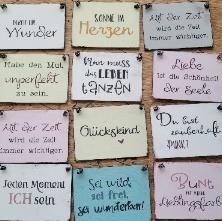 Wunder
SONNE IM
Herzen
Mit der Zeit
wird die Zeit
immer wichtiger.
Habe den Mut,
unperfekt
zu sein.
Man muss
das LEBEN
tanzen
Liebe
ist die Schönheit
der Seele
Mit der Zeit
wird die Zeit
immer wichtiger.
Glückskind
Du bist
zauberhaft
Jeden Moment
ICH sein
Sei wild,
sei frei,
sei wunderbar!
BUNT
ist meine
Lieblingsfarbe